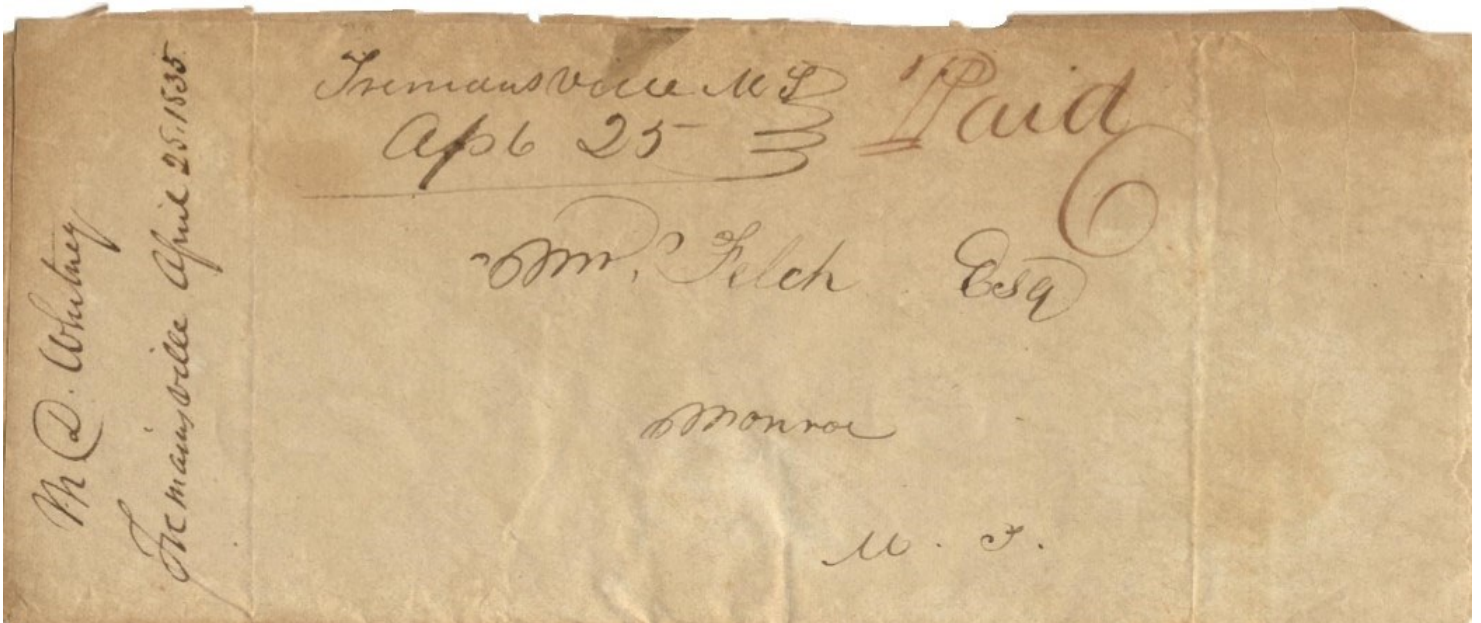 M D. Whitney
Tremainsville April 25. 1835
Tremansville M T
Apl 25
Paid
6
Mr. Felch Esq
Monroe
M. T.